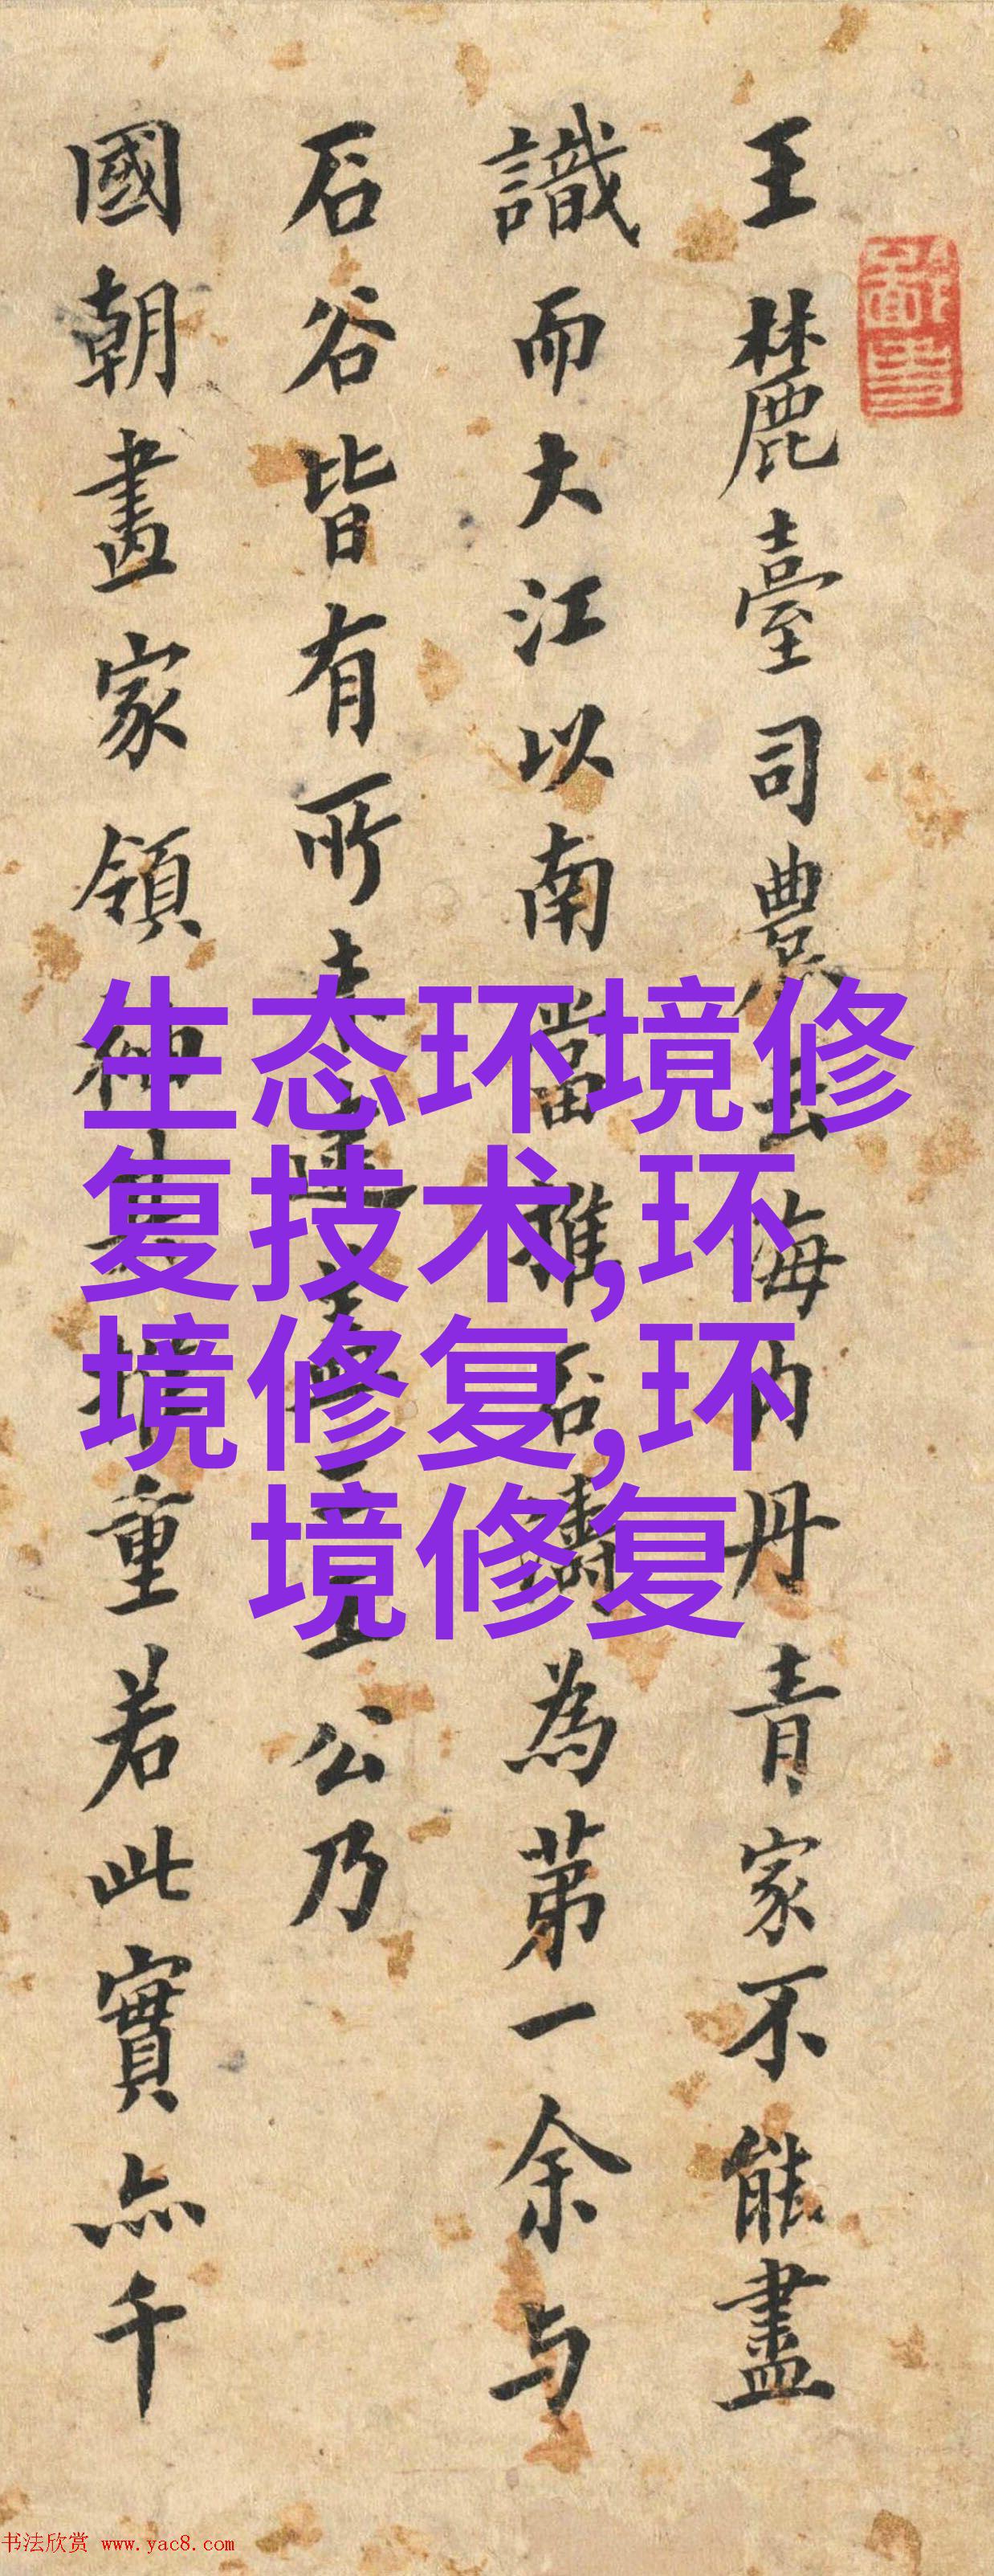 王麓臺司農云海内丹青家不能盡
識而大江以南當推石濤為第一余与
石谷皆有所未逮王公乃
國朝畫家領袖其推重若此實亦千
生态环境修
复技术,环
境修复,环
境修复
书法欣赏 www.yac8.com